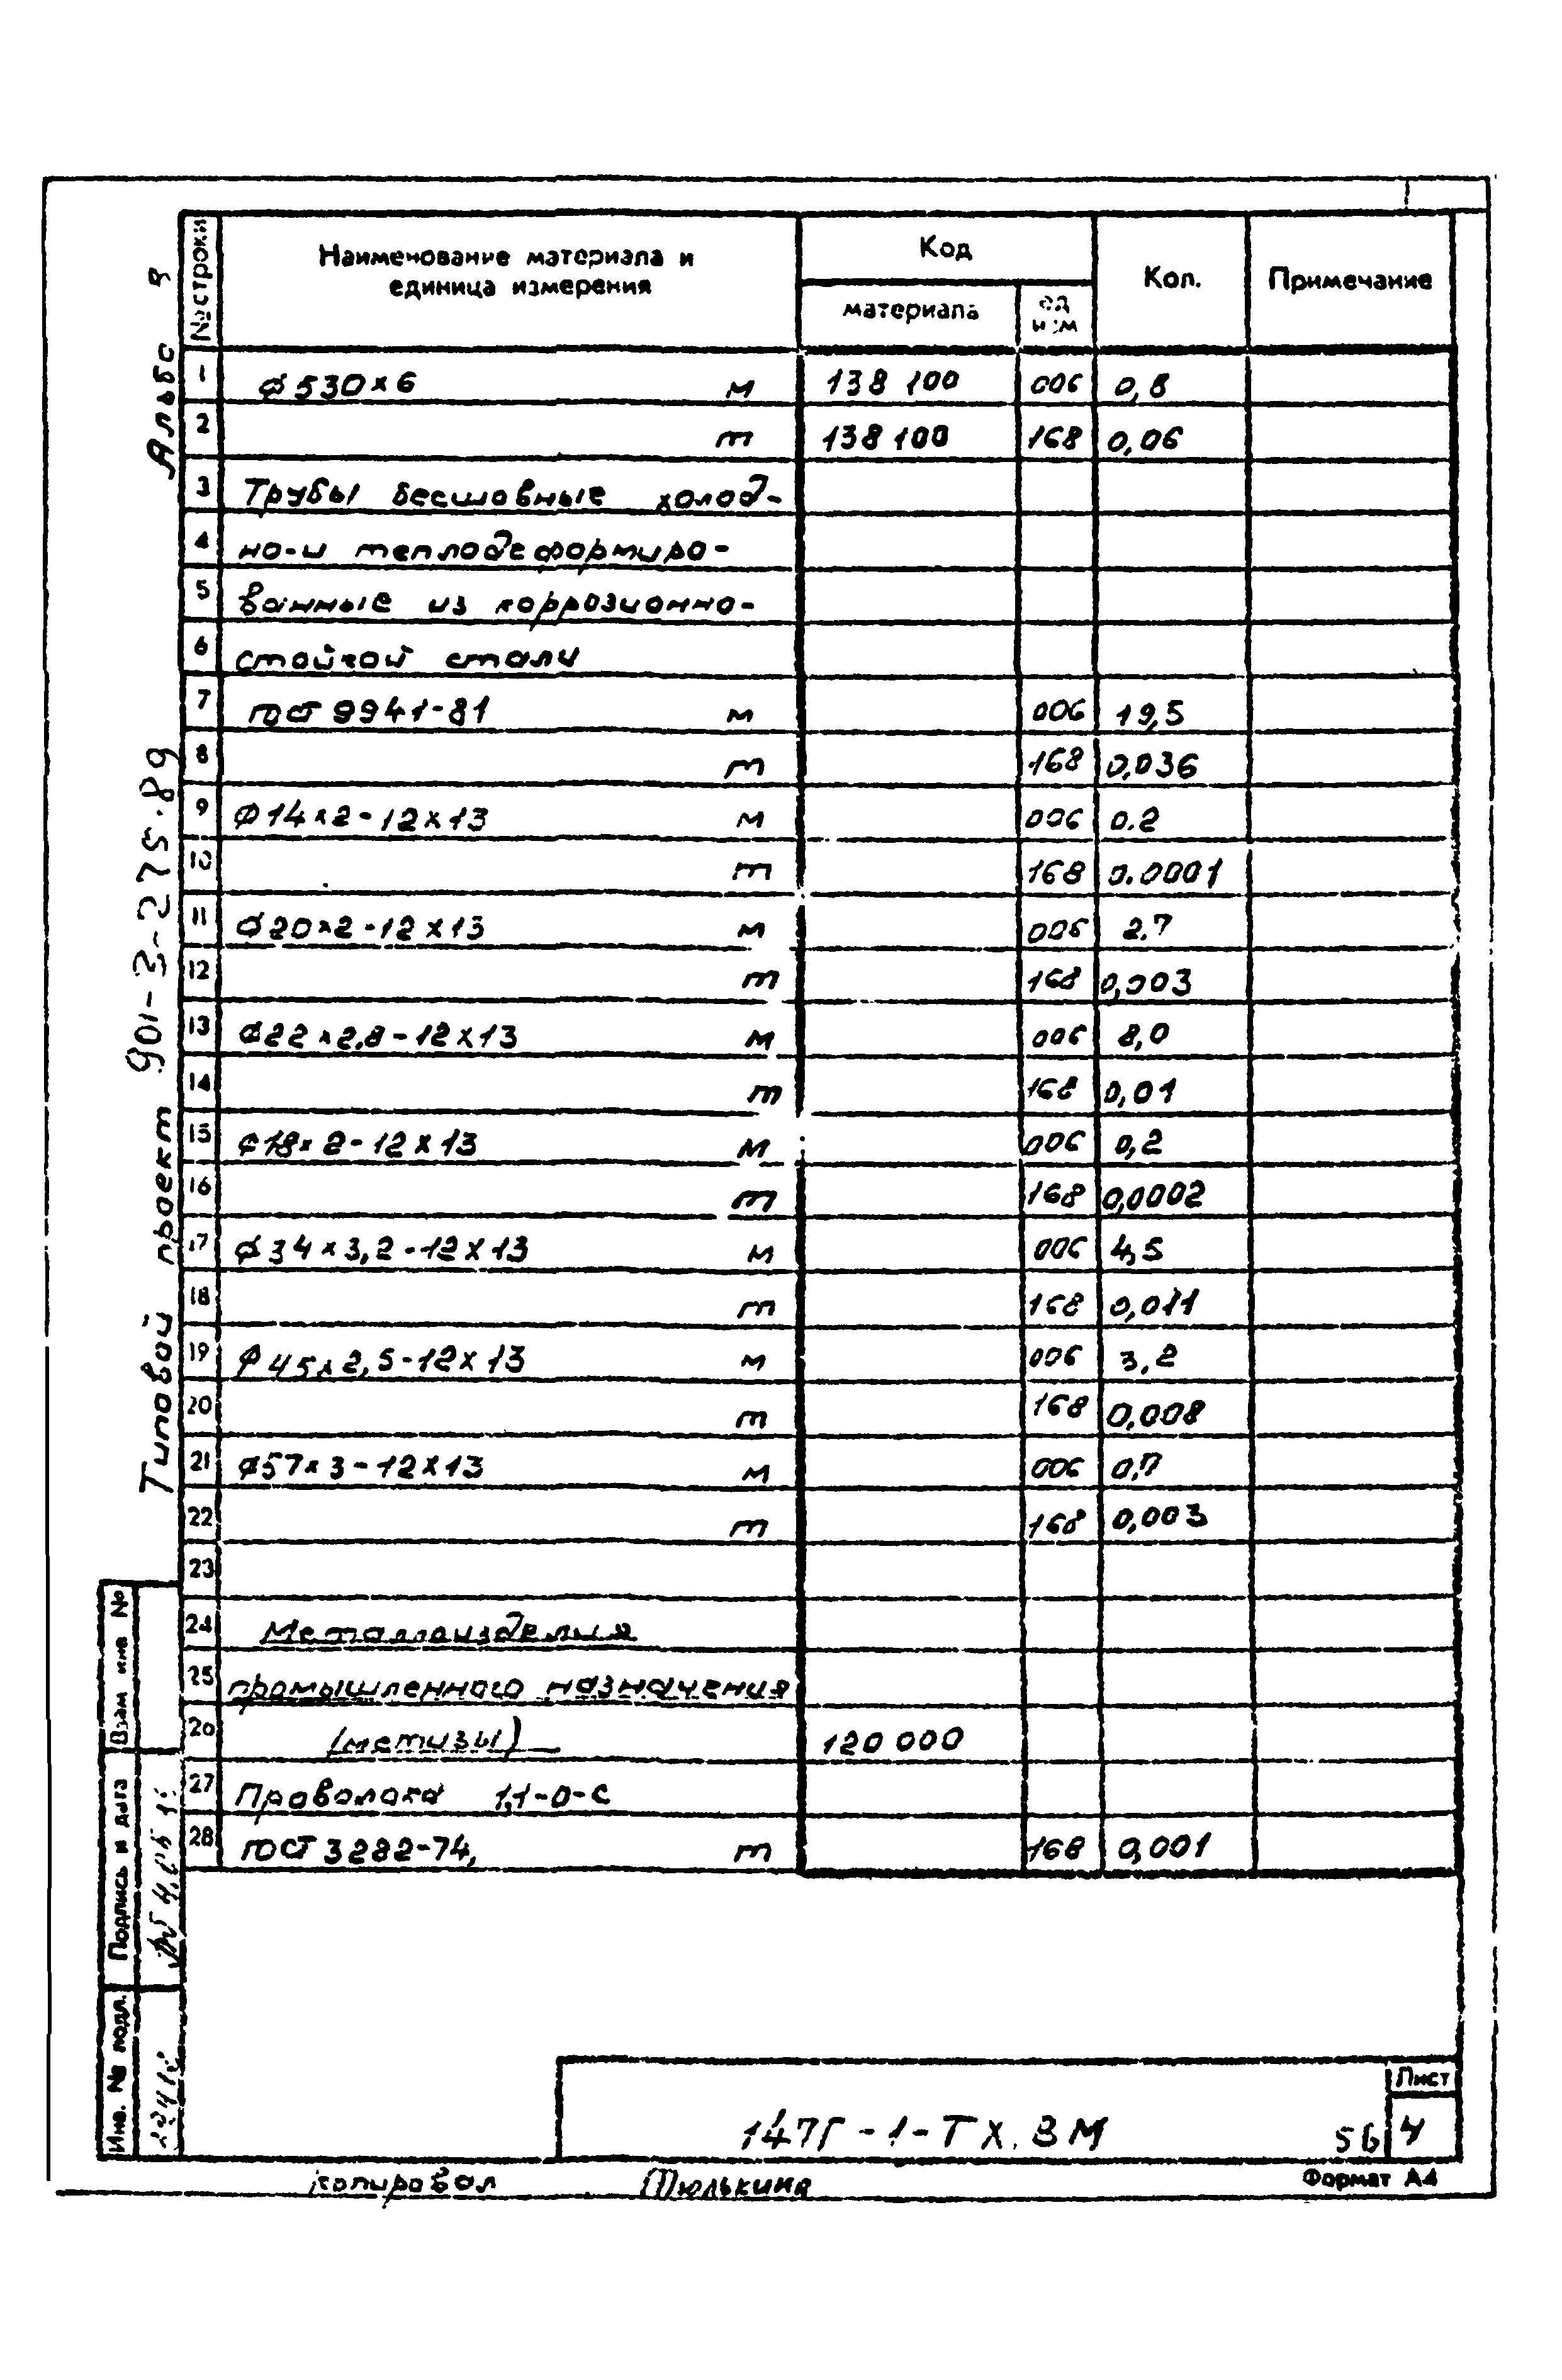 № строки
Наименование материала и
единица измерения
Код
материала
ед
изм
Кол.
Примечание
1 ϕ530×6 м 138 100 006 0,8
2 т 138 100 168 0,06
3 Трубы бесшовные холод-
4 но-и теплодеформиро-
5 ванные из коррозионно-
6 стойкой стали
7 ГОСТ 9941-81 м 006 19,5
8 т 168 0,036
9 ϕ14×2-12×13 м 006 0.2
10 т 168 0.0001
11 ϕ20×2-12×13 м 006 2.7
12 т 168 0,003
13 ϕ22×2,8-12×13 м 006 8,0
14 т 168 0,01
15 ϕ18×2-12×13 м 006 0,2
16 т 168 0,0002
17 ϕ34×3,2-12×13 м 006 4,5
18 т 168 0,011
19 ϕ45×2,5-12×13 м 006 3,2
20 т 168 0,008
21 ϕ57×3-12×13 м 006 0,7
22 т 168 0,003
23
24 Металлоизделия
25 промышленного назначения
26 (метизы) 120 000
27 Проволока 1,1-О-С
28 ГОСТ 3282-74, т 168 0,001
Типовой проект 901-3-275.89
Взам инв №
Подпись и дата
Инв. № подл.
147Г-1-ТХ.ВМ
56
Лист
4
копировал Тюлькина
Формат А4